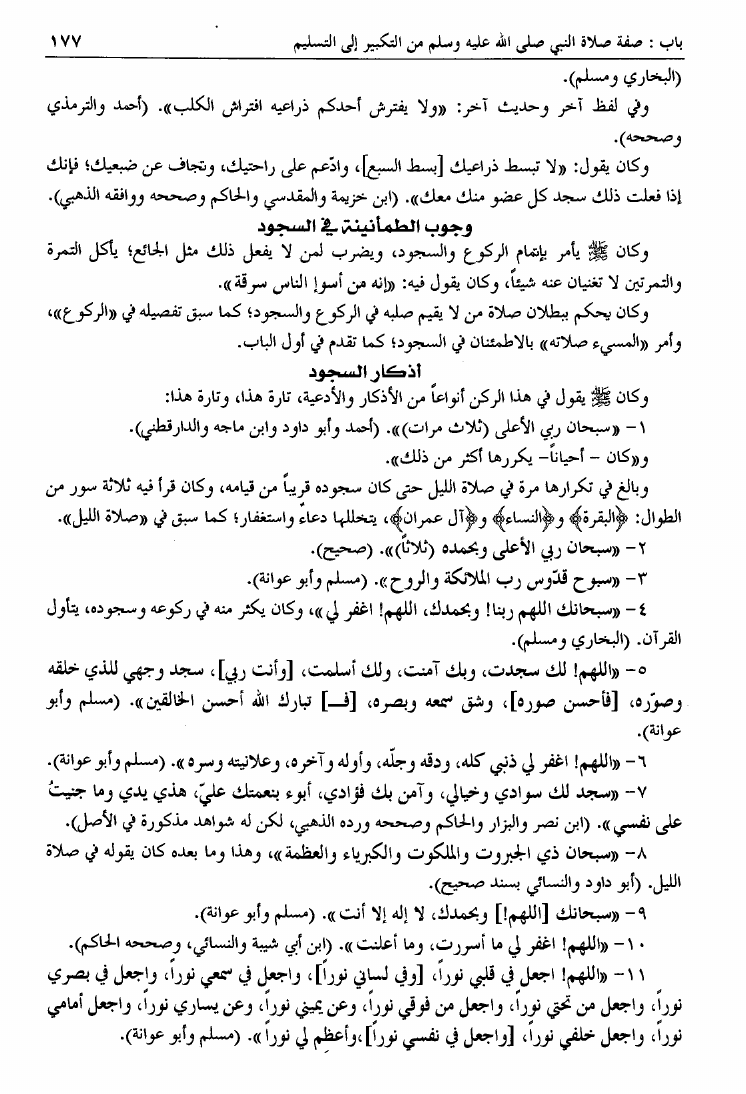 باب : صفة صلاة النبي صلى الله عليه وسلم من التكبير إلى التسليم ١٧٧
(البخاري ومسلم).
وفي لفظ آخر وحديث آخر: «ولا يفترش أحدكم ذراعيه افتراش الكلب». (أحمد والترمذي
وصححه).
وكان يقول: «لا تبسط ذراعيك [بسط السبع]، وادّعم على راحتيك، وتجاف عن ضبعيك؛ فإنك
إذا فعلت ذلك سجد كل عضو منك معك». (ابن خزيمة والمقدسي والحاكم وصححه ووافقه الذهبي).
وجوب الطمأنينة في السجود
وكان ﷺ يأمر بإتمام الركوع والسجود، ويضرب لمن لا يفعل ذلك مثل الجائع؛ يأكل التمرة
والتمرتين لا تغنيان عنه شيئاً، وكان يقول فيه: «إنه من أسوإ الناس سرقة».
وكان يحكم ببطلان صلاة من لا يقيم صلبه في الركوع والسجود؛ كما سبق تفصيله في «الركوع»،
وأمر «المسيء صلاته» بالاطمئنان في السجود؛ كما تقدم في أول الباب.
أذكار السجود
وكان ﷺ يقول في هذا الركن أنواعاً من الأذكار والأدعية، تارة هذا، وتارة هذا:
١- «سبحان ربي الأعلى (ثلاث مرات)». (أحمد وأبو داود وابن ماجه والدارقطني).
و«كان - أحياناً- يكررها أكثر من ذلك».
وبالغ في تكرارها مرة في صلاة الليل حتى كان سجوده قريباً من قيامه، وكان قرأ فيه ثلاثة سور من
الطوال: ﴿البقرة﴾ و﴿النساء﴾ و﴿آل عمران﴾، يتخللها دعاء واستغفار؛ كما سبق في «صلاة الليل».
٢- «سبحان ربي الأعلى وبحمده (ثلاثاً)». (صحيح).
٣- «سبوح قدّوس رب الملائكة والروح». (مسلم وأبو عوانة).
٤- «سبحانك اللهم ربنا! وبحمدك، اللهم! اغفر لي»، وكان يكثر منه في ركوعه وسجوده، يتأول
القرآن. (البخاري ومسلم).
٥- «اللهم! لك سجدت، وبك آمنت، ولك أسلمت، [وأنت ربي]، سجد وجهي للذي خلقه
وصوّره، [فأحسن صوره]، وشق سمعه وبصره، [فـ] تبارك الله أحسن الخالقين». (مسلم وأبو
عوانة).
٦- «اللهم! اغفر لي ذنبي كله، ودقه وجلّه، وأوله وآخره، وعلانيته وسره». (مسلم وأبو عوانة).
٧- «سجد لك سوادي وخيالي، وآمن بك فؤادي، أبوء بنعمتك عليّ، هذي يدي وما جنيتُ
على نفسي». (ابن نصر والبزار والحاكم وصححه ورده الذهبي، لكن له شواهد مذكورة في الأصل).
٨- «سبحان ذي الجبروت والملكوت والكبرياء والعظمة»، وهذا وما بعده كان يقوله في صلاة
الليل. (أبو داود والنسائي بسند صحيح).
٩- «سبحانك [اللهم!] وبحمدك، لا إله إلا أنت». (مسلم وأبو عوانة).
١٠- «اللهم! اغفر لي ما أسررت، وما أعلنت». (ابن أبي شيبة والنسائي، وصححه الحاكم).
١١- «اللهم! اجعل في قلبي نوراً، [وفي لساني نوراً]، واجعل في سمعي نوراً، واجعل في بصري
نوراً، واجعل من تحتي نوراً، واجعل من فوقي نوراً، وعن يميني نوراً، وعن يساري نوراً، واجعل أمامي
نوراً، واجعل خلفي نوراً، [واجعل في نفسي نوراً]،وأعظِم لي نوراً». (مسلم وأبو عوانة).